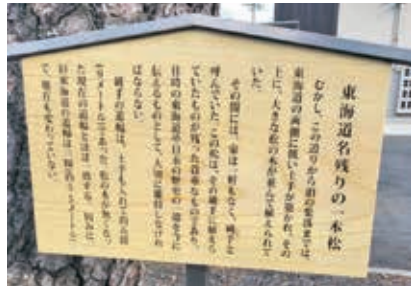 東海道名残りの一本松
むかし、この辺りから沼の集落までは、
東海道の両側に低い土手が築かれ、その
上に、大きな松の木が並んで植えられて
いた。
その間には、家は一軒もなく、縄手と
呼んでいた。この松は、その縄手に植えら
れていたものが残った貴重なものであり、
往時の東海道や日本の歴史の一端を今に
伝えるものとして、大切に維持しなけれ
ばならない。
縄手の道幅は、土手も入れて約
メートルであった。松の木が無くなっ
た現在の道幅とほぼ一致する。因みに、
旧東海道の道幅は
で、現在も変わっていない。